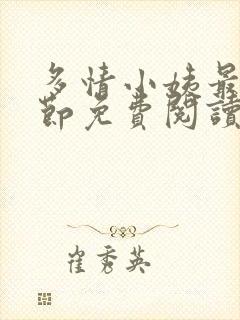 多情小姨最
節免費閱讀
崔秀英